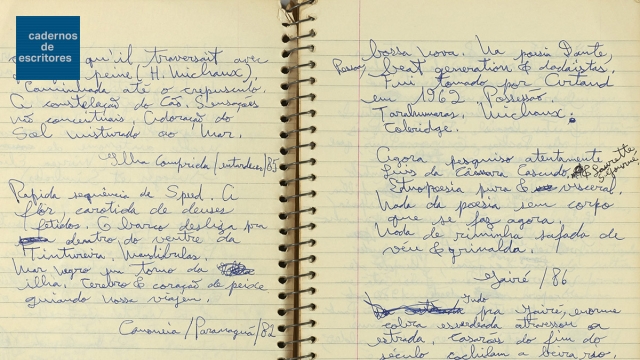 cadernos
de
escritores
qu'il traversait avec
peine (H. Michaux).
Caminhada até o crepúsculo.
A constelação do Cão. Sensações
não conceituais. Adoração do
Sol misturado ao Mar.
Ilha Comprida/entardecer/85
Rápida sequência de Speed. A
flor carotida de deuses
fétidos. O barco desliza pra
dentro do ventre da
Tintureira. Mandíbulas.
Mar negro em torno da
ilha. Cérebro & coração de peixe
guiando nossa viagem.
Cananéia/Paranaguá/82
bossa nova. Na poesia Dante,
beat generation & dadaístas.
Fui tomado por Artaud
em 1962. Possessão.
Tarahumaras. Michaux.
Coleridge.
Agora pesquiso atentamente
Luis da Câmara Cascudo & Laurette Séjourné.
Etnopoesia pura & visceral.
Nada da poesia sem corpo
que se faz agora.
Nada de riminha safada de
véu & grinalda.
Iguapé/86
Indo
pra Iguapé, enorme
cobra esverdeada atravessou a
estrada. Casarões do fim do
século cochilam à beira rio.